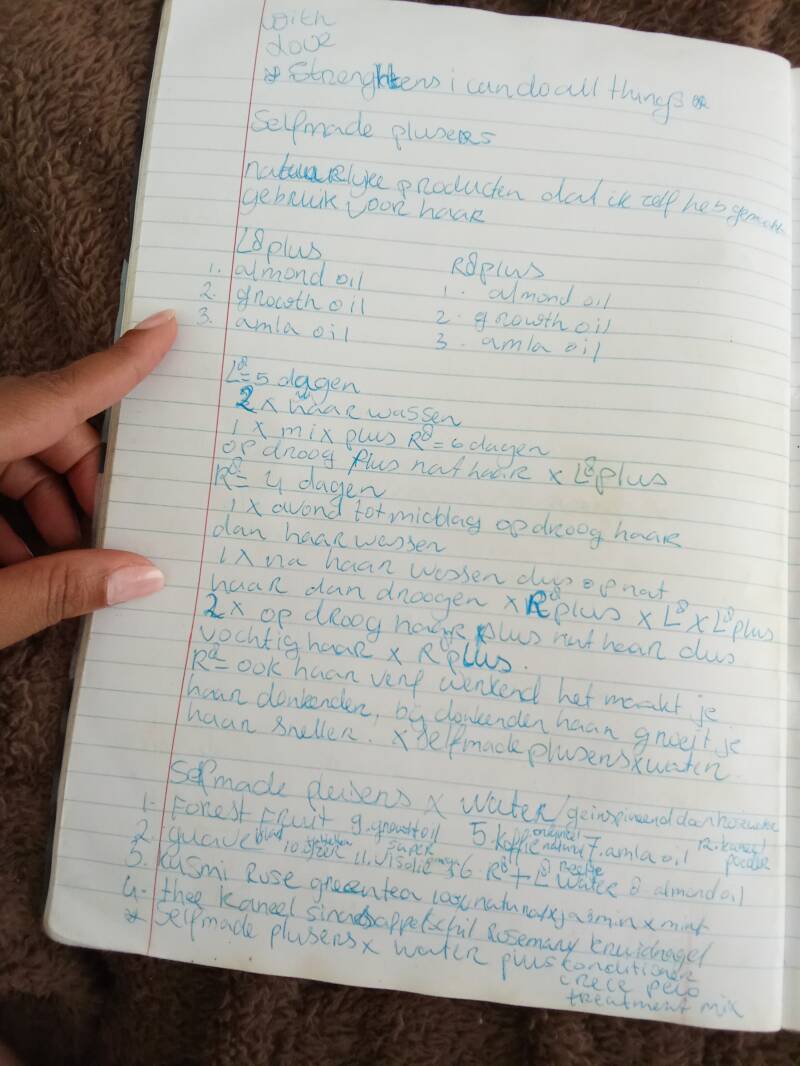 with
love
* Strenghtens i can do all things
Selfmade plusers
natuurlyke producten dat ik zelf heb gemaakt
gebruik voor haar
L8plus
1. almond oil
2. growth oil
3. amla oil
R8plus
1. almond oil
2. growth oil
3. amla oil
L8= 5 dagen
2x haar wassen
1 x mix plus R8= 6 dagen
op droog plus nat haar x L8plus
R8= 4 dagen
1 x avond tot middag op droog haar
dan haar wassen
1 x na haar wassen dus op nat
haar dan drogen x R8plus x L8 x L8plus
2x op droog haar plus nat haar dus
vochtig haar x R8plus.
R8= ook haar verf werkend het maakt je
haar donkerder, bij donkerder haar groeit je
haar sneller. x selfmade plusens x water
Selfmade plusens x Water / geinspireerd dan rosewater
1- Forest Fruit 9. growt oil 5. koffie original naturu 7. amla oil 12. kaneel poeder
2. guave blad 10. 11. Visolie 6. R8 + L8 Water 8. almond oil
3. Kusmi Rose greentea 100% naturalxjasmin x mint
4. thee kaneel appel Rosemary kruidnagel
* Selfmade plusens x water plus conditioner
crece pelo
treatment mix